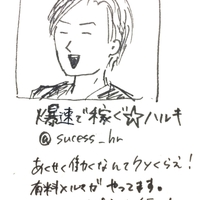 爆速で稼ぐ☆ハルキ
@sucess_hr
あくせく働くなんてクソくらえ!
有料メルマガ やってます。